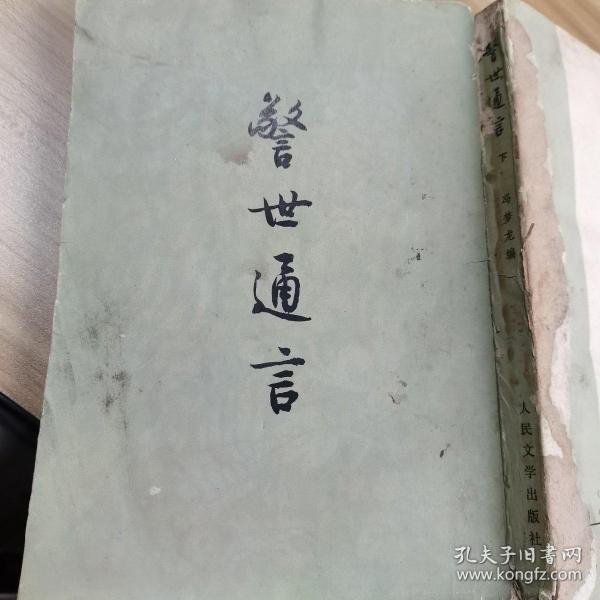 警世通言
警世通言 下 冯梦龙编 人民文学出版社
孔夫子旧书网
www.kongfz.com